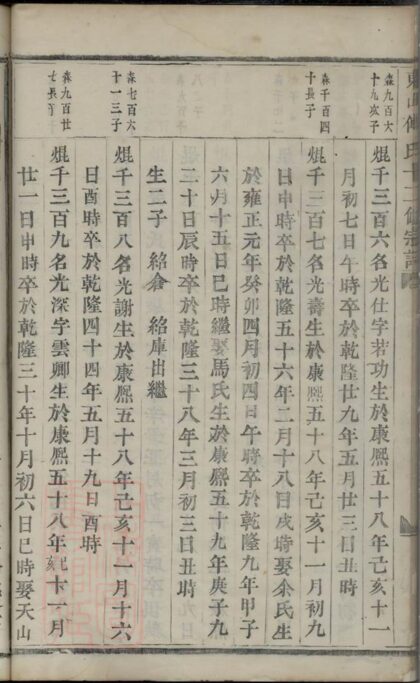 氏十二修宗譜
森九百六
十九次子
焜千三百六名光仕字若功生於康熙五十八年己亥十一
月初七日午時卒於乾隆廿九年五月廿三日丑時
森千百四
十長子
焜千三百七名光壽生於康熙五十八年己亥十一月初九
日申時卒於乾隆五十六年二月十八日戌時娶余氏生
於雍正元年癸卯四月初四日午時卒於乾隆九年甲子
六月十五日巳時繼娶馬氏生於康熙五十九年庚子九
二十日辰時卒於乾隆三十八年三月初三日丑時
生二子 紹倉 紹庫出繼
森七百六
十一三子
焜千三百八名光謝生於康熙五十八年己亥十一月十六
日酉時卒於乾隆四十四年五月十九日酉時
森九百廿
七長子
焜千三百九名光深字雲卿生於康熙五十八年己亥十一月
廿一日申時卒於乾隆三十年十月初六日巳時娶天山